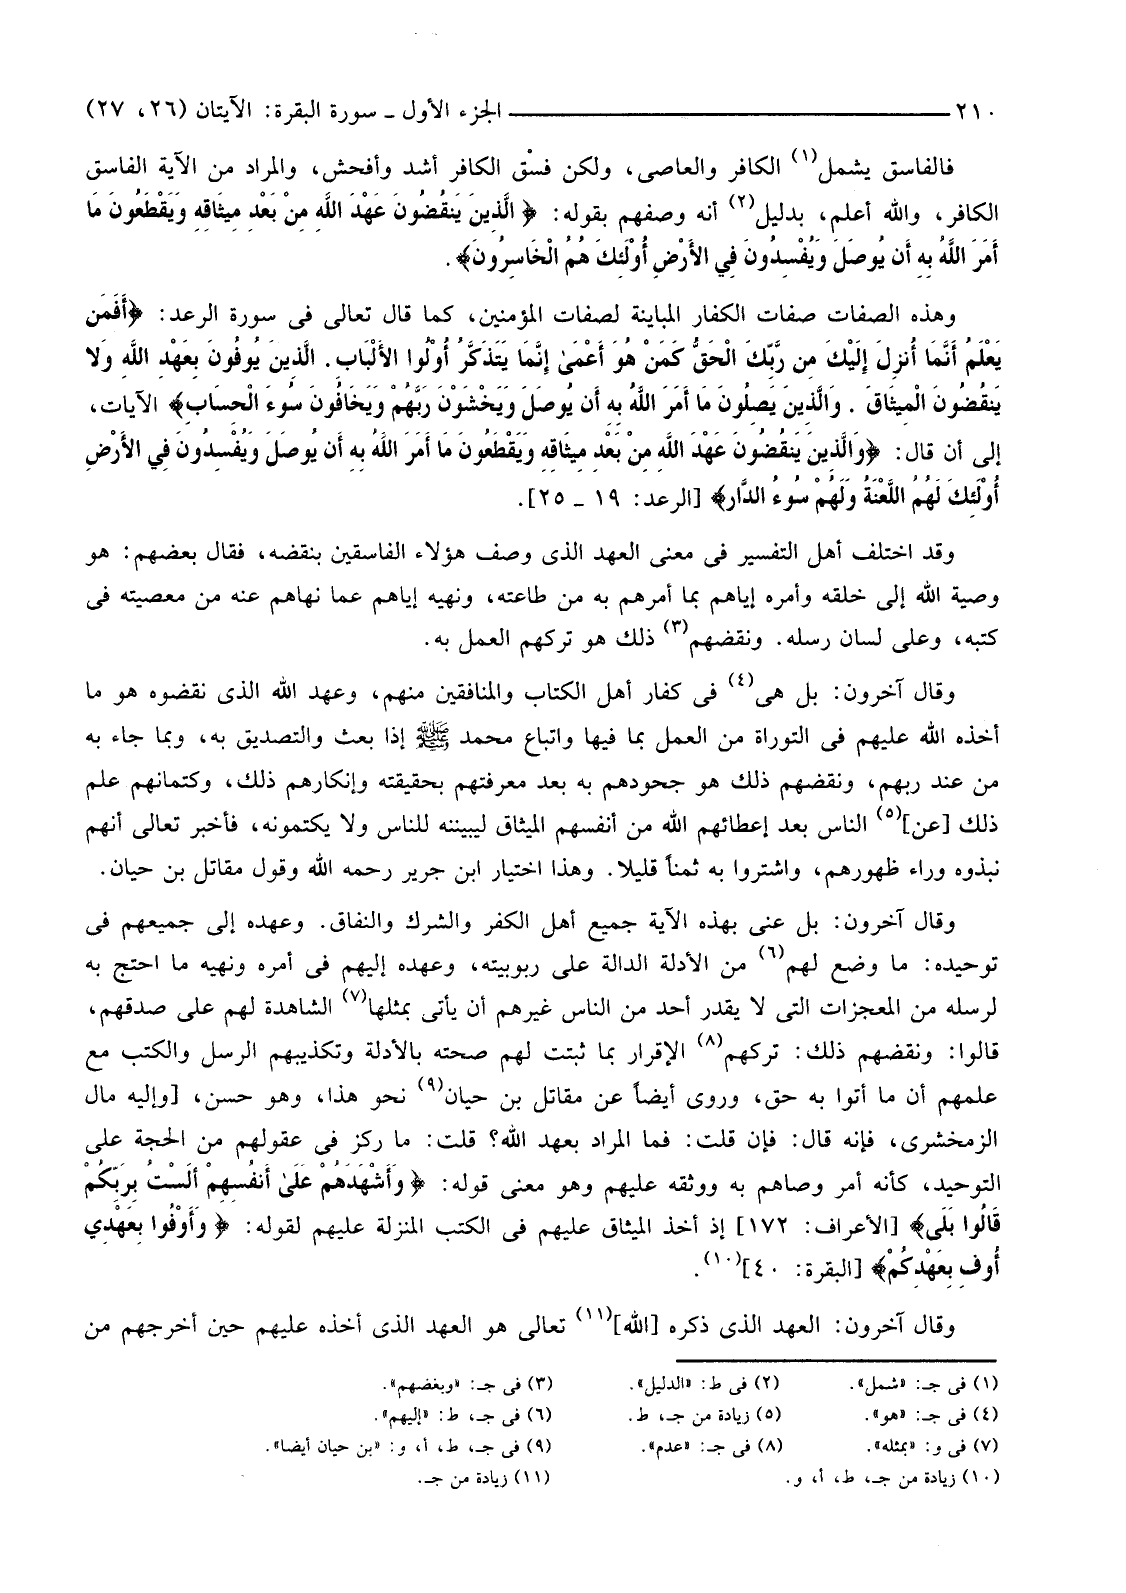 ٢١٠ ــــــــــــــــــ الجزء الأول ـ سورة البقرة: الآيتان (٢٦، ٢٧)
فالفاسق يشمل(١) الكافر والعاصى، ولكن فسْق الكافر أشد وأفحش، والمراد من الآية الفاسق
الكافر، والله أعلم، بدليل(٢) أنه وصفهم بقوله: ﴿ الَّذِينَ يَنقُضُونَ عَهْدَ اللَّهِ مِنْ بَعْدِ مِيثَاقِهِ وَيَقْطَعُونَ مَا
أَمَرَ اللَّهُ بِهِ أَن يُوصَلَ وَيُفْسِدُونَ فِي الأَرْضِ أُوْلَئِكَ هُمُ الْخَاسِرُونَ﴾.
وهذه الصفات صفات الكفار المباينة لصفات المؤمنين، كما قال تعالى فى سورة الرعد: ﴿أَفَمَن
يَعْلَمُ أَنَّمَا أُنزِلَ إِلَيْكَ مِن رَّبِّكَ الْحَقُّ كَمَنْ هُوَ أَعْمَىٰ إِنَّمَا يَتَذَكَّرُ أُوْلُوا الأَلْبَابِ. الَّذِينَ يُوفُونَ بِعَهْدِ اللَّهِ وَلا
يَنقُضُونَ الْمِيثَاقَ . وَالَّذِينَ يَصِلُونَ مَا أَمَرَ اللَّهُ بِهِ أَن يُوصَلَ وَيَخْشَوْنَ رَبَّهُمْ وَيَخَافُونَ سُوءَ الْحِسَابِ﴾ الآيات،
إلى أن قال: ﴿وَالَّذِينَ يَنقُضُونَ عَهْدَ اللَّهِ مِنْ بَعْدِ مِيثَاقِهِ وَيَقْطَعُونَ مَا أَمَرَ اللَّهُ بِهِ أَن يُوصَلَ وَيُفْسِدُونَ فِي الأَرْضِ
أُوْلَئِكَ لَهُمُ اللَّعْنَةُ وَلَهُمْ سُوءُ الدَّارِ﴾ [الرعد: ١٩ ـ ٢٥].
وقد اختلف أهل التفسير فى معنى العهد الذى وصف هؤلاء الفاسقين بنقضه، فقال بعضهم: هو
وصية الله إلى خلقه وأمره إياهم بما أمرهم به من طاعته، ونهيه إياهم عما نهاهم عنه من معصيته فى
كتبه، وعلى لسان رسله. ونقضهم(٣) ذلك هو تركهم العمل به.
وقال آخرون: بل هى(٤) فى كفار أهل الكتاب والمنافقين منهم، وعهد الله الذى نقضوه هو ما
أخذه الله عليهم فى التوراة من العمل بما فيها واتباع محمد ﷺ إذا بعث والتصديق به، وبما جاء به
من عند ربهم، ونقضهم ذلك هو جحودهم به بعد معرفتهم بحقيقته وإنكارهم ذلك، وكتمانهم علم
ذلك [عن](٥) الناس بعد إعطائهم الله من أنفسهم الميثاق ليبيننه للناس ولا يكتمونه، فأخبر تعالى أنهم
نبذوه وراء ظهورهم، واشتروا به ثمناً قليلا. وهذا اختيار ابن جرير رحمه الله وقول مقاتل بن حيان.
وقال آخرون: بل عنى بهذه الآية جميع أهل الكفر والشرك والنفاق. وعهده إلى جميعهم فى
توحيده: ما وضع لهم(٦) من الأدلة الدالة على ربوبيته، وعهده إليهم فى أمره ونهيه ما احتج به
لرسله من المعجزات التى لا يقدر أحد من الناس غيرهم أن يأتى بمثلها(٧) الشاهدة لهم على صدقهم،
قالوا: ونقضهم ذلك: تركهم(٨) الإقرار بما ثبتت لهم صحته بالأدلة وتكذيبهم الرسل والكتب مع
علمهم أن ما أتوا به حق، وروى أيضاً عن مقاتل بن حيان(٩) نحو هذا، وهو حسن، [وإليه مال
الزمخشرى، فإنه قال: فإن قلت: فما المراد بعهد الله؟ قلت: ما ركز فى عقولهم من الحجة على
التوحيد، كأنه أمر وصاهم به ووثقه عليهم وهو معنى قوله: ﴿ وَأَشْهَدَهُمْ عَلَىٰ أَنفُسِهِمْ أَلَسْتُ بِرَبِّكُمْ
قَالُوا بَلَى﴾ [الأعراف: ١٧٢] إذ أخذ الميثاق عليهم فى الكتب المنزلة عليهم لقوله: ﴿ وَأَوْفُوا بِعَهْدِي
أُوفِ بِعَهْدِكُمْ﴾ [البقرة: ٤٠](١٠).
وقال آخرون: العهد الذى ذكره [الله](١١) تعالى هو العهد الذى أخذه عليهم حين أخرجهم من
(١) فى جـ: «شمل». (٢) فى ط: «الدليل». (٣) فى جـ: «وبغضهم».
(٤) فى جـ: «هو». (٥) زيادة من جـ، ط. (٦) فى جـ، ط: «إليهم».
(٧) فى و: «بمثله». (٨) فى جـ: «عدم». (٩) فى جـ، ط، أ، و: «بن حيان أيضا».
(١٠) زيادة من جـ، ط، أ، و. (١١) زيادة من جـ.